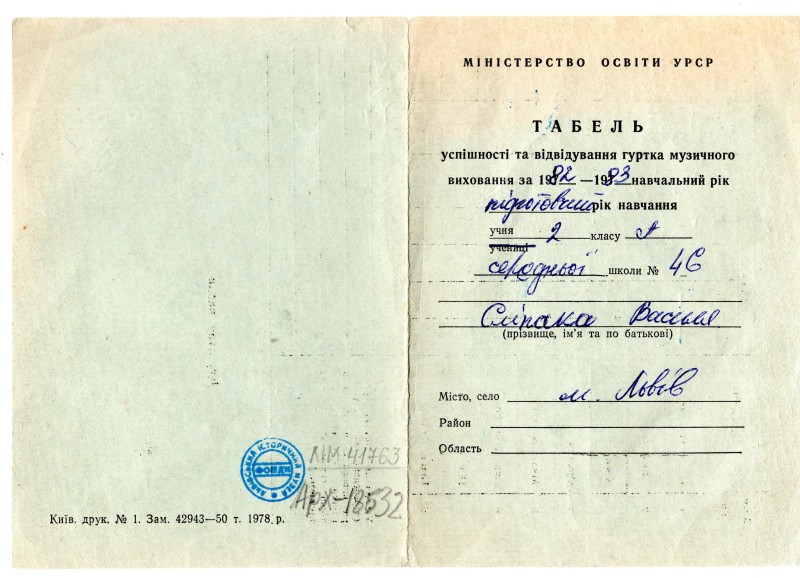 ЛЬВІВСЬКИЙ ІСТОРИЧНИЙ МУЗЕЙ
ФОНДИ
ЛІМ-41763
Арх-18532
Київ. друк. № 1. Зам. 42943—50 т. 1978 р.
МІНІСТЕРСТВО ОСВІТИ УРСР
ТАБЕЛЬ
успішності та відвідування гуртка музичного
виховання за 1982—1983 навчальний рік
підготовчий рік навчання
учня 2 класу А
учениці
середньої школи № 46
Сліпака Василя
(прізвище, ім'я та по батькові)
Місто, село м. Львів
Район
Область